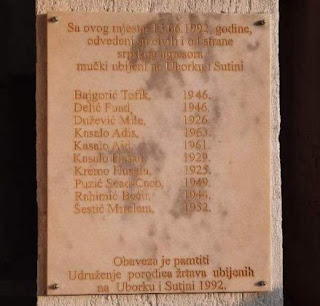 Sa ovog mjesta 13.06.1992. godine,
odvedeni su civili i od strane
srpskog agresora
mučki ubijeni na Uborku i Sutini
Bajgorić Tofik, 1946.
Delić Fuad, 1946.
Dužević Mile, 1926.
Kasalo Adis, 1963.
Kasalo Aid, 1961.
Kasalo Hasan, 1929.
Kremo Husein, 1925.
Puzić Sead-Caco, 1949.
Rahimić Bećir, 1944.
Šestić Mustafa, 1932.
Obaveza je pamtiti
Udruženje porodica žrtava ubijenih
na Uborku i Sutini 1992.